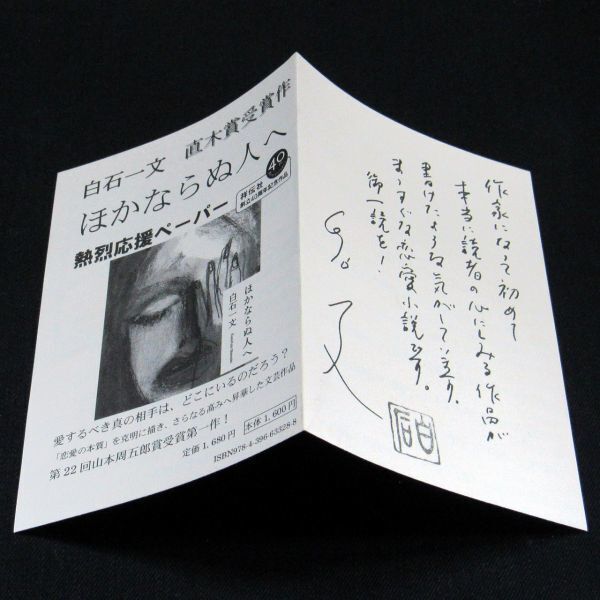 白石一文 直木賞受賞作
ほかならぬ人へ
祥伝社
創立40周年記念作品
40
熱烈応援ペーパー
ほかならぬ人へ
白石一文
愛するべき真の相手は、どこにいるのだろう？
「恋愛の本質」を克明に描き、さらなる高みへ昇華した文芸作品
第22回山本周五郎賞受賞第一作！
定価1,680円 本体1,600円
ISBN978-4-396-63328-8
作家になって初めて
本当に読者の心にしみる作品が
書けたような気がしています。
まっすぐな恋愛小説です。
御一読を！
白石